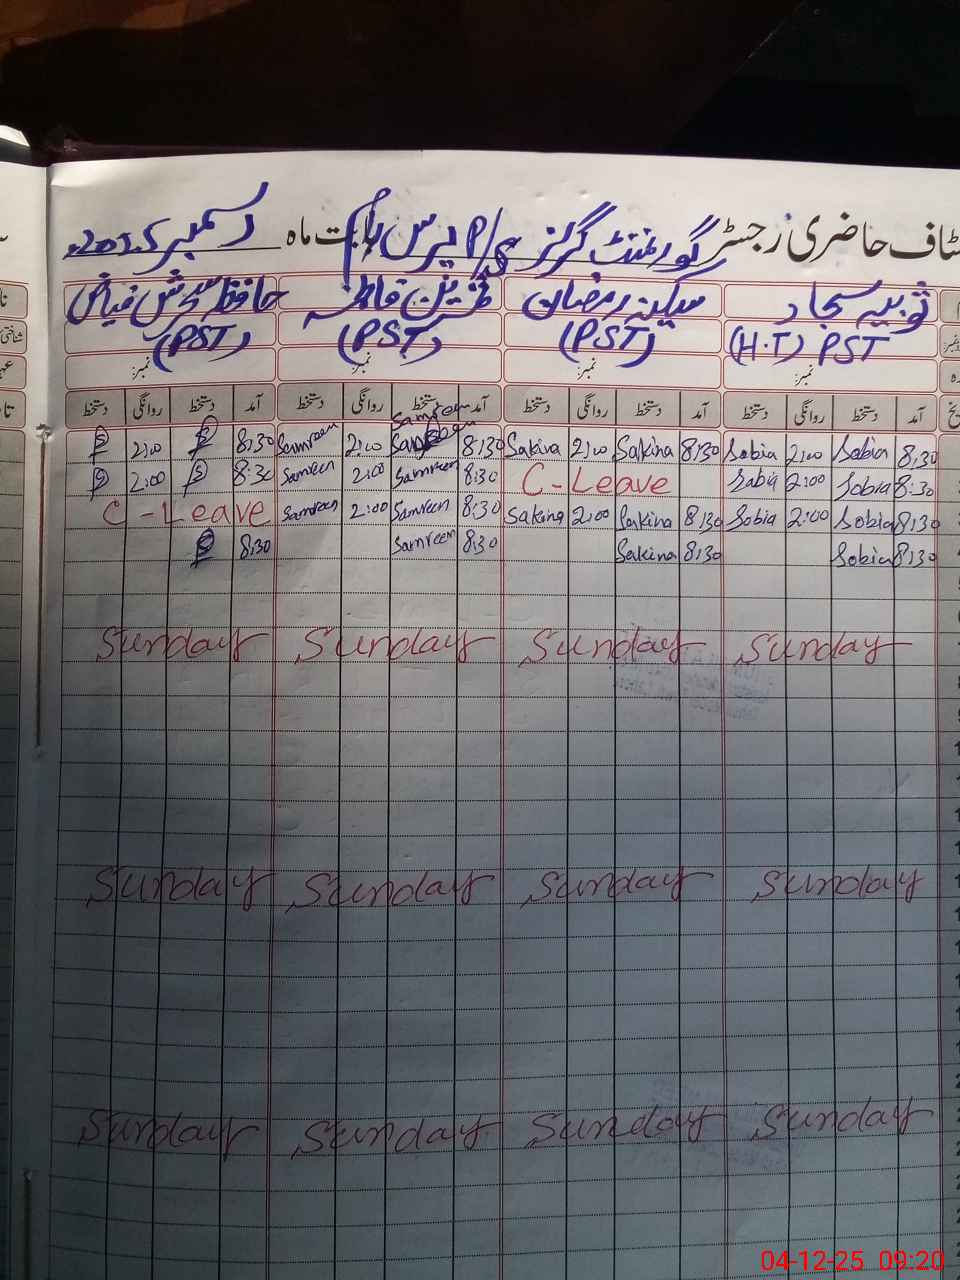 ٹاف حاضری رجسٹر گورنمنٹ گرلز P/S بابت ماہ دسمبر 2025ء
ثوبیہ سجاد سکینہ رمضان ثمرین فاطمہ حافظ سحرش فیاض
(H.T) PST (PST) (PST) (PST)
نمبر: نمبر: نمبر: نمبر:
آمد دستخط روانگی دستخط آمد دستخط روانگی دستخط آمد دستخط روانگی دستخط آمد دستخط روانگی دستخط
Samreen
2:00 8:30 Samreen 2:00 8:30 Sakina 2:00 Sakina 8:30 Sobia 2:00 Sobia 8:30
2:00 8:30 Samreen 2:00 Samreen 8:30 C-Leave Sobia 2:00 Sobia 8:30
C-Leave Samreen 2:00 Samreen 8:30 Sakina 2:00 Sakina 8:30 Sobia 2:00 Sobia 8:30
8:30 Samreen 8:30 Sakina 8:30 Sobia 8:30
Sunday Sunday Sunday Sunday
Sunday Sunday Sunday Sunday
Sunday Sunday Sunday Sunday
04-12-25 09:20